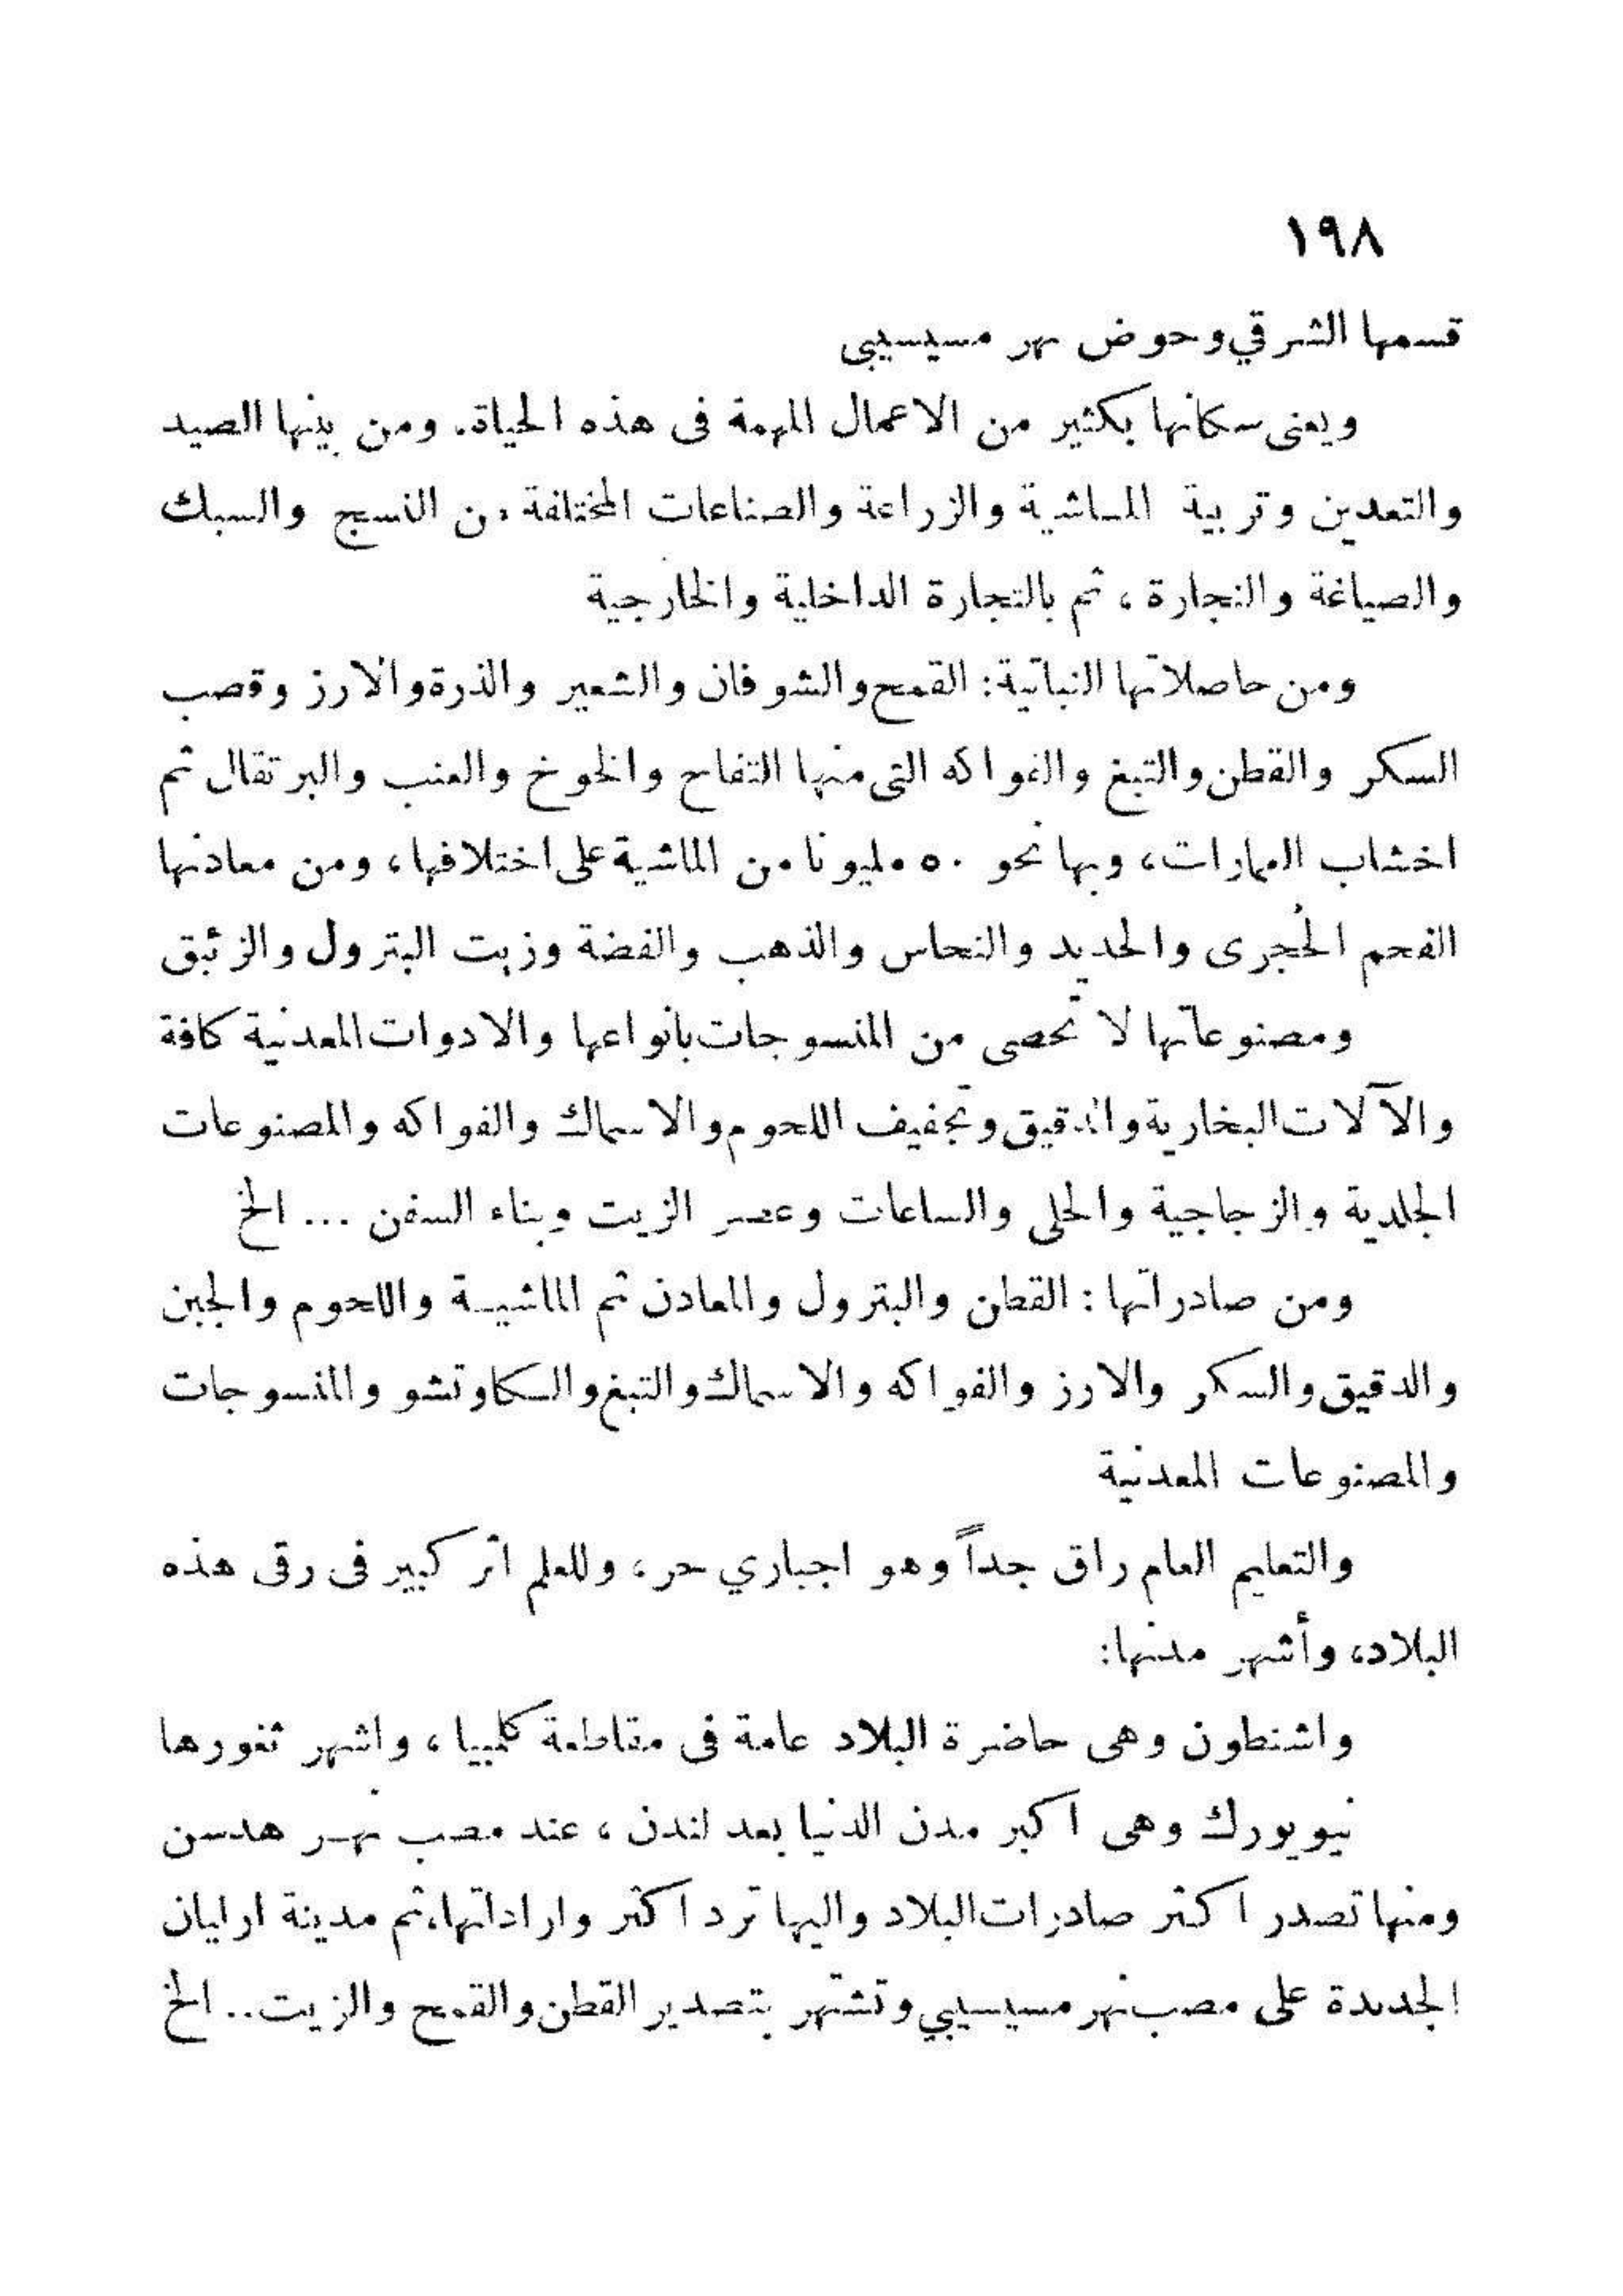 ١٩٨
قسمها الشرقي وحوض نهر مسيسيبى
ويعنى سكانها بكثير من الاعمال المهمة فى هذه الحياة. ومن بينها الصيد
والتعدين وتربية الماشية والزراعة والصناعات المختلفة من النسج والسبك
والصياغة والنجارة ، ثم بالتجارة الداخلية والخارجية
ومن حاصلاتها النباتية: القمح والشوفان والشعير والذرة والارز وقصب
السكر والقطن والتبغ والفواكه التى منها التفاح والخوخ والعنب والبرتقال ثم
اخشاب العمارات، وبها نحو ٥٠ مليونا من الماشية على اختلافها، ومن معادنها
الفحم الحُجرى والحديد والنحاس والذهب والفضة وزيت البترول والزئبق
ومصنوعاتها لا تحصى من المنسوجات بانواعها والادوات المعدنية كافة
والآلات البخارية والدقيق وتجفيف اللحوم والاسماك والفواكه والمصنوعات
الجلدية والزجاجية والحلى والساعات وعصر الزيت وبناء السفن ... الخ
ومن صادراتها : القطن والبترول والمعادن ثم الماشية واللحوم والجبن
والدقيق والسكر والارز والفواكه والاسماك والتبغ والكاوتشو والمنسوجات
والمصنوعات المعدنية
والتعليم العام راق جداً وهو اجباري حر، وللعلم اثر كبير فى رقى هذه
البلاد، وأشهر مدنها:
واشنطون وهى حاضرة البلاد عامة فى مقاطعة كلمبيا ، واشهر ثغورها
نيويورك وهى اكبر مدن الدنيا بعد لندن ، عند مصب نهر هدسن
ومنها تصدر اكثر صادرات البلاد واليها ترد اكثر وارداتها، ثم مدينة ارليان
الجديدة على مصب نهر مسيسيبي وتشتهر بتصدير القطن والقمح والزيت.. الخ